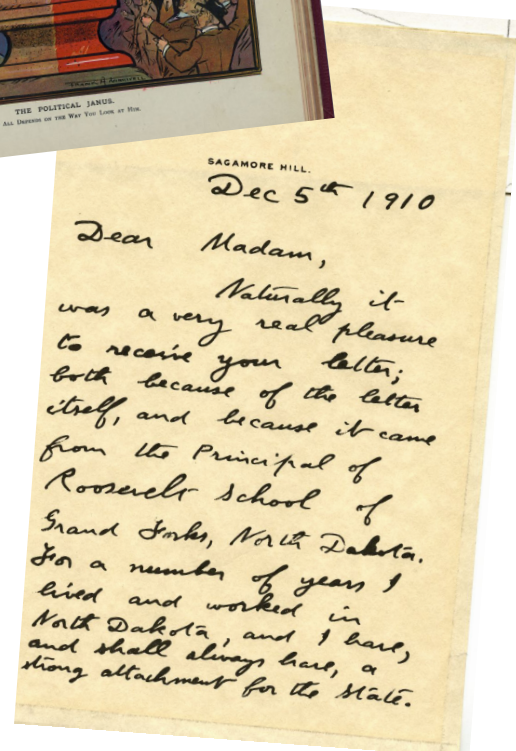 THE POLITICAL JANUS.
ALL DEPENDS ON THE WAY YOU LOOK AT HIM.
SAGAMORE HILL.
Dec 5th 1910
Dear Madam,
Naturally it
was a very real pleasure
to receive your letter;
both because of the letter
itself, and because it came
from the Principal of
Roosevelt School of
Grand Forks, North Dakota.
For a number of years I
lived and worked in
North Dakota, and I have,
and shall always have, a
strong attachment for the State.